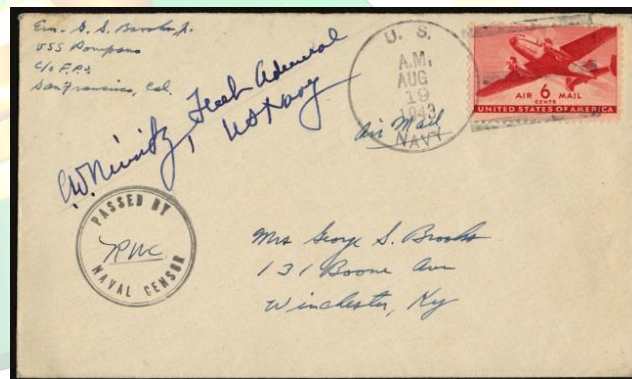 Ens. G. S. Brooks, Jr.
USS Pompano
c/o F.P.O.
San Francisco, Cal.
C.W. Nimitz, Fleet Admiral
US Navy
U. S.
A.M.
AUG
19
1943
NAVY
Air Mail
AIR 6 MAIL
CENTS
UNITED STATES OF AMERICA
PASSED BY
RWC
NAVAL CENSOR
Mrs George S. Brooks
131 Boone Ave
Winchester, Ky